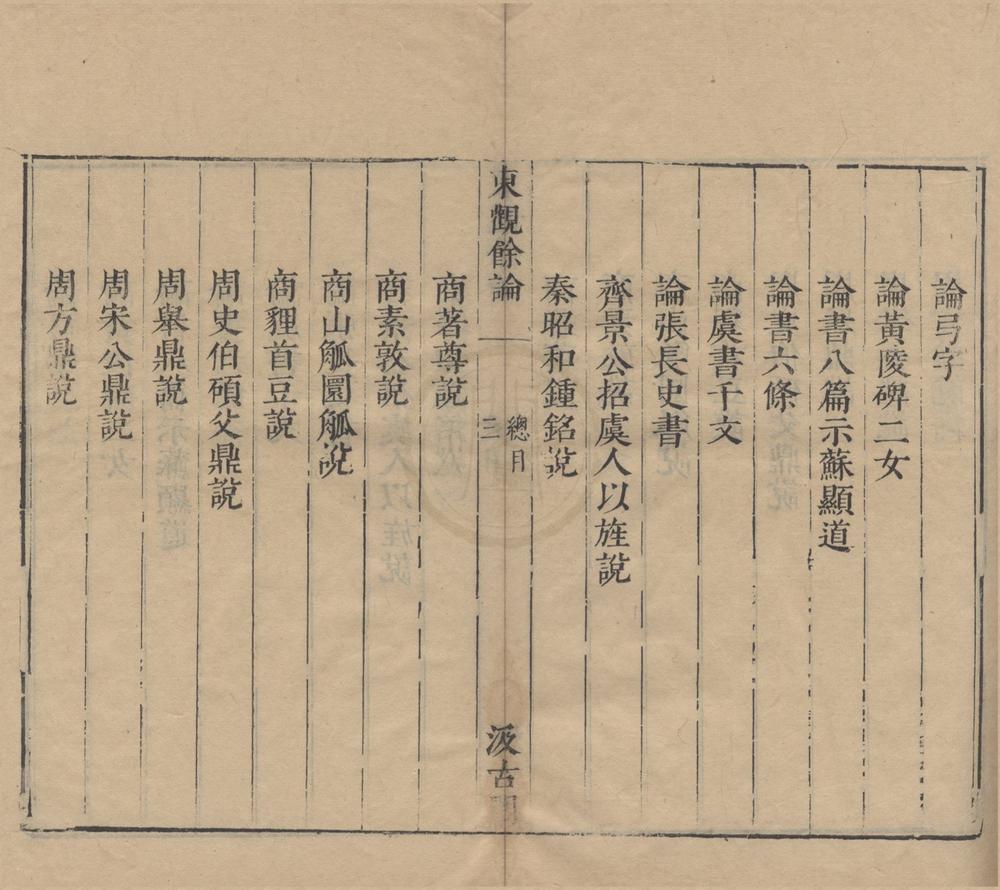 論弓字
論黃陵碑二女
論書八篇示蘇顯道
論書六條
論虞書千文
論張長史書
齊景公招虞人以旌說
秦昭和鍾銘說
東觀餘論
總目
三
汲古
商著尊說
商素敦說
商山觚圜觚說
商貍首豆說
周史伯碩父鼎說
周舉鼎說
周宋公鼎說
周方鼎說